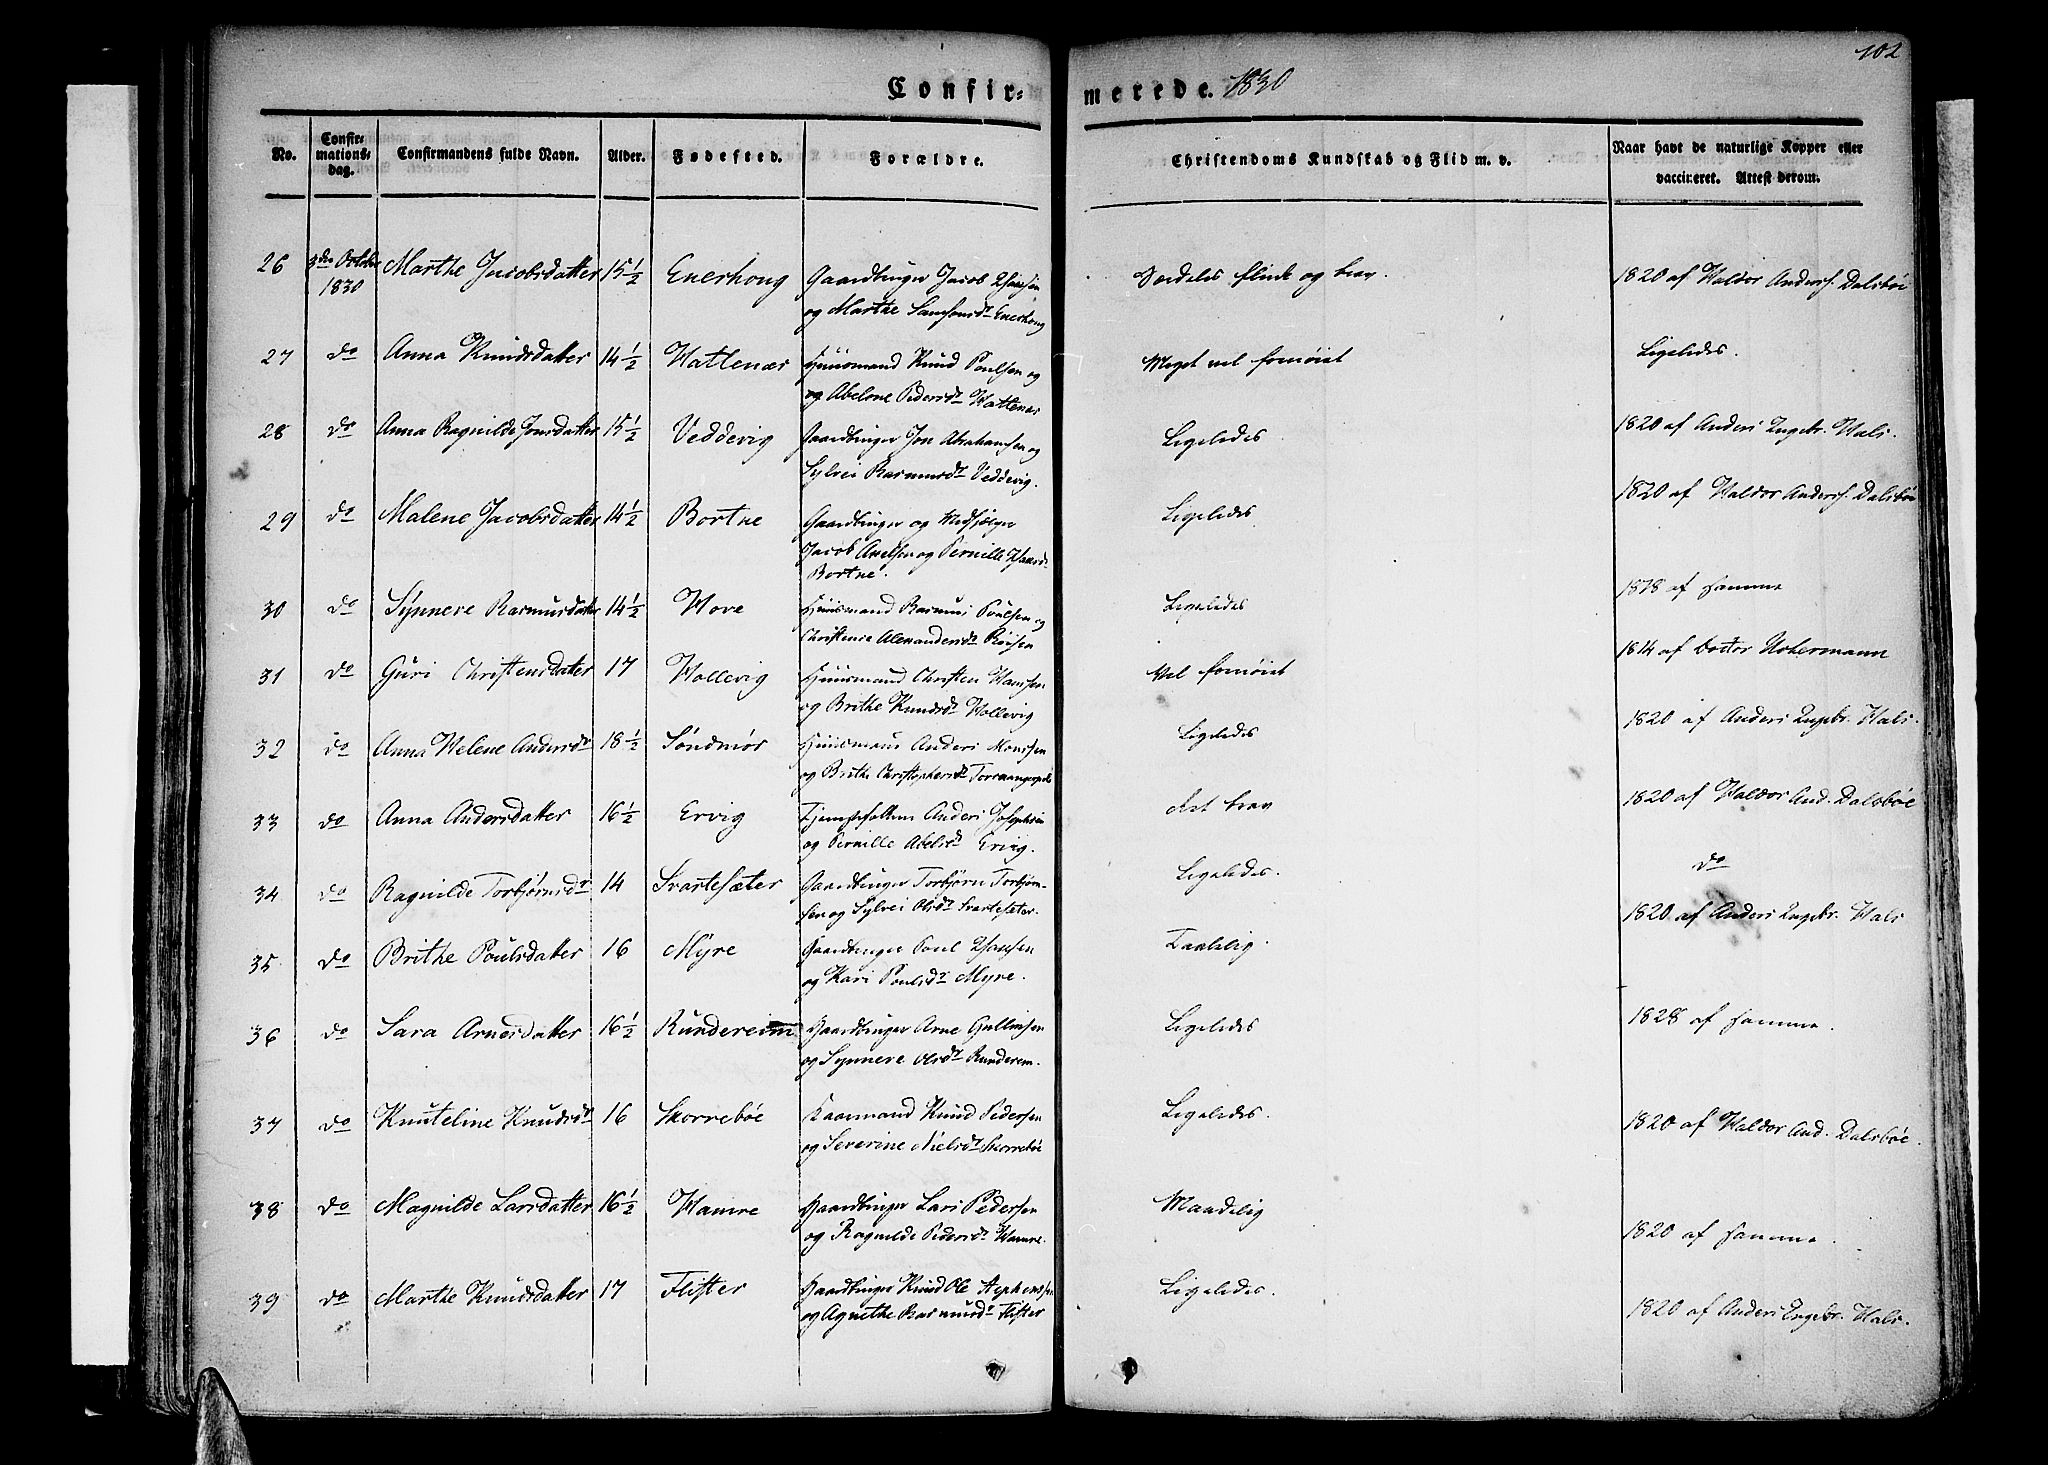 102
Confirmerede. 1830
No.
Confirmationsdag.
Confirmandens fulde Navn.
Alder.
Fødested.
Forældre.
Christendoms Kundskab og Flid m. v.
Naar havt de naturlige Kopper eller
vaccineret. Attest derom.
26 3die October 1830 Marthe Jacobsdatter 15 1/2 Enerhoug Gaardbruger Jacob Hansen
og Marthe Samsonsdr Enerhoug
Særdeles flink og brav. 1820 af Haldor Anders. Dalsbøe
27 do Anna Knudsdatter 14 1/2 Hattenær Huusmand Knud Poulsen og
og Abelone Pedersdr Hattenær
Meget vel fornøiet Ligeledes.
28 do Anna Ragnilde Jonsdatter 15 1/2 Veddevig Gaardbruger Jon Abrahamsen og
Sylvei Rasmusdr Veddevig.
Ligeledes 1820 af Anders Engebr. Hals.
29 do Malene Jacobsdatter 14 1/2 Bortne Gaardbruger og Medhjælper
Jacob Axelsen og Pernille Hansdr
Bortne.
Ligeledes 1820 af Haldor Anders. Dalsbøe
30 do Synneve Rasmusdatter 14 1/2 Hove Huusmand Rasmus Poulsen og
Christense Alexandersdr
Ligeledes 1818 af samme
31 do Guri Christensdatter 17 Hollevig Huusmand Christen Hansen
og Brithe Knudsdr Hollevig
Vel fornøiet 1814 af Doctor Uchermann
32 do Anna Helene Andersdr 18 1/2 Søndmør Huusmand Anders Monssen
og Brithe Christophersdr
Ligeledes 1820 af Anders Engebr. Hals.
33 do Anna Andersdatter 16 1/2 Ervig Tjenestfolkene Anders Josephsen
og Pernille Abelsdr Ervig.
Ret brav 1820 af Haldor And. Dalsbøe
34 do Ragnilde Torbjørnsdr 14 Svartesæter Gaardbruger Torbjørn Torbjørn-
sen og Sylvei Olsdr Svartesæter.
Ligeledes. do
35 do Brithe Poulsdatter 16 Myre Gaardbruger Poul Hansen
og Kari Poulsdr Myre.
Taalelig. 1820 af Anders Engebr. Hals
36 do Sara Arnesdatter 16 1/2 Rundereim Gaardbruger Arne Gullacsen
og Synneve Olsdr Runderem.
Ligeledes 1828 af samme.
37 do Knuteline Knudsdr 16 Skorrebøe Kaarmand Knud Pedersen
og Severine Nielsdr Skorrebøe
Ligeledes. 1820 af Haldor And. Dalsbøe.
38 do Magnilde Larsdatter 16 1/2 Hamre Gaardbruger Lars Pedersen
og Ragnilde Pedersdr Hamre.
Maadelig 1820 af samme.
39 do Marthe Knudsdatter 17 Flister Gaardbruger Knud Ole Stephenssen
og Agnethe Rasmusdr Flister
Ligeledes. 1820 af Anders Engebr. Hals.